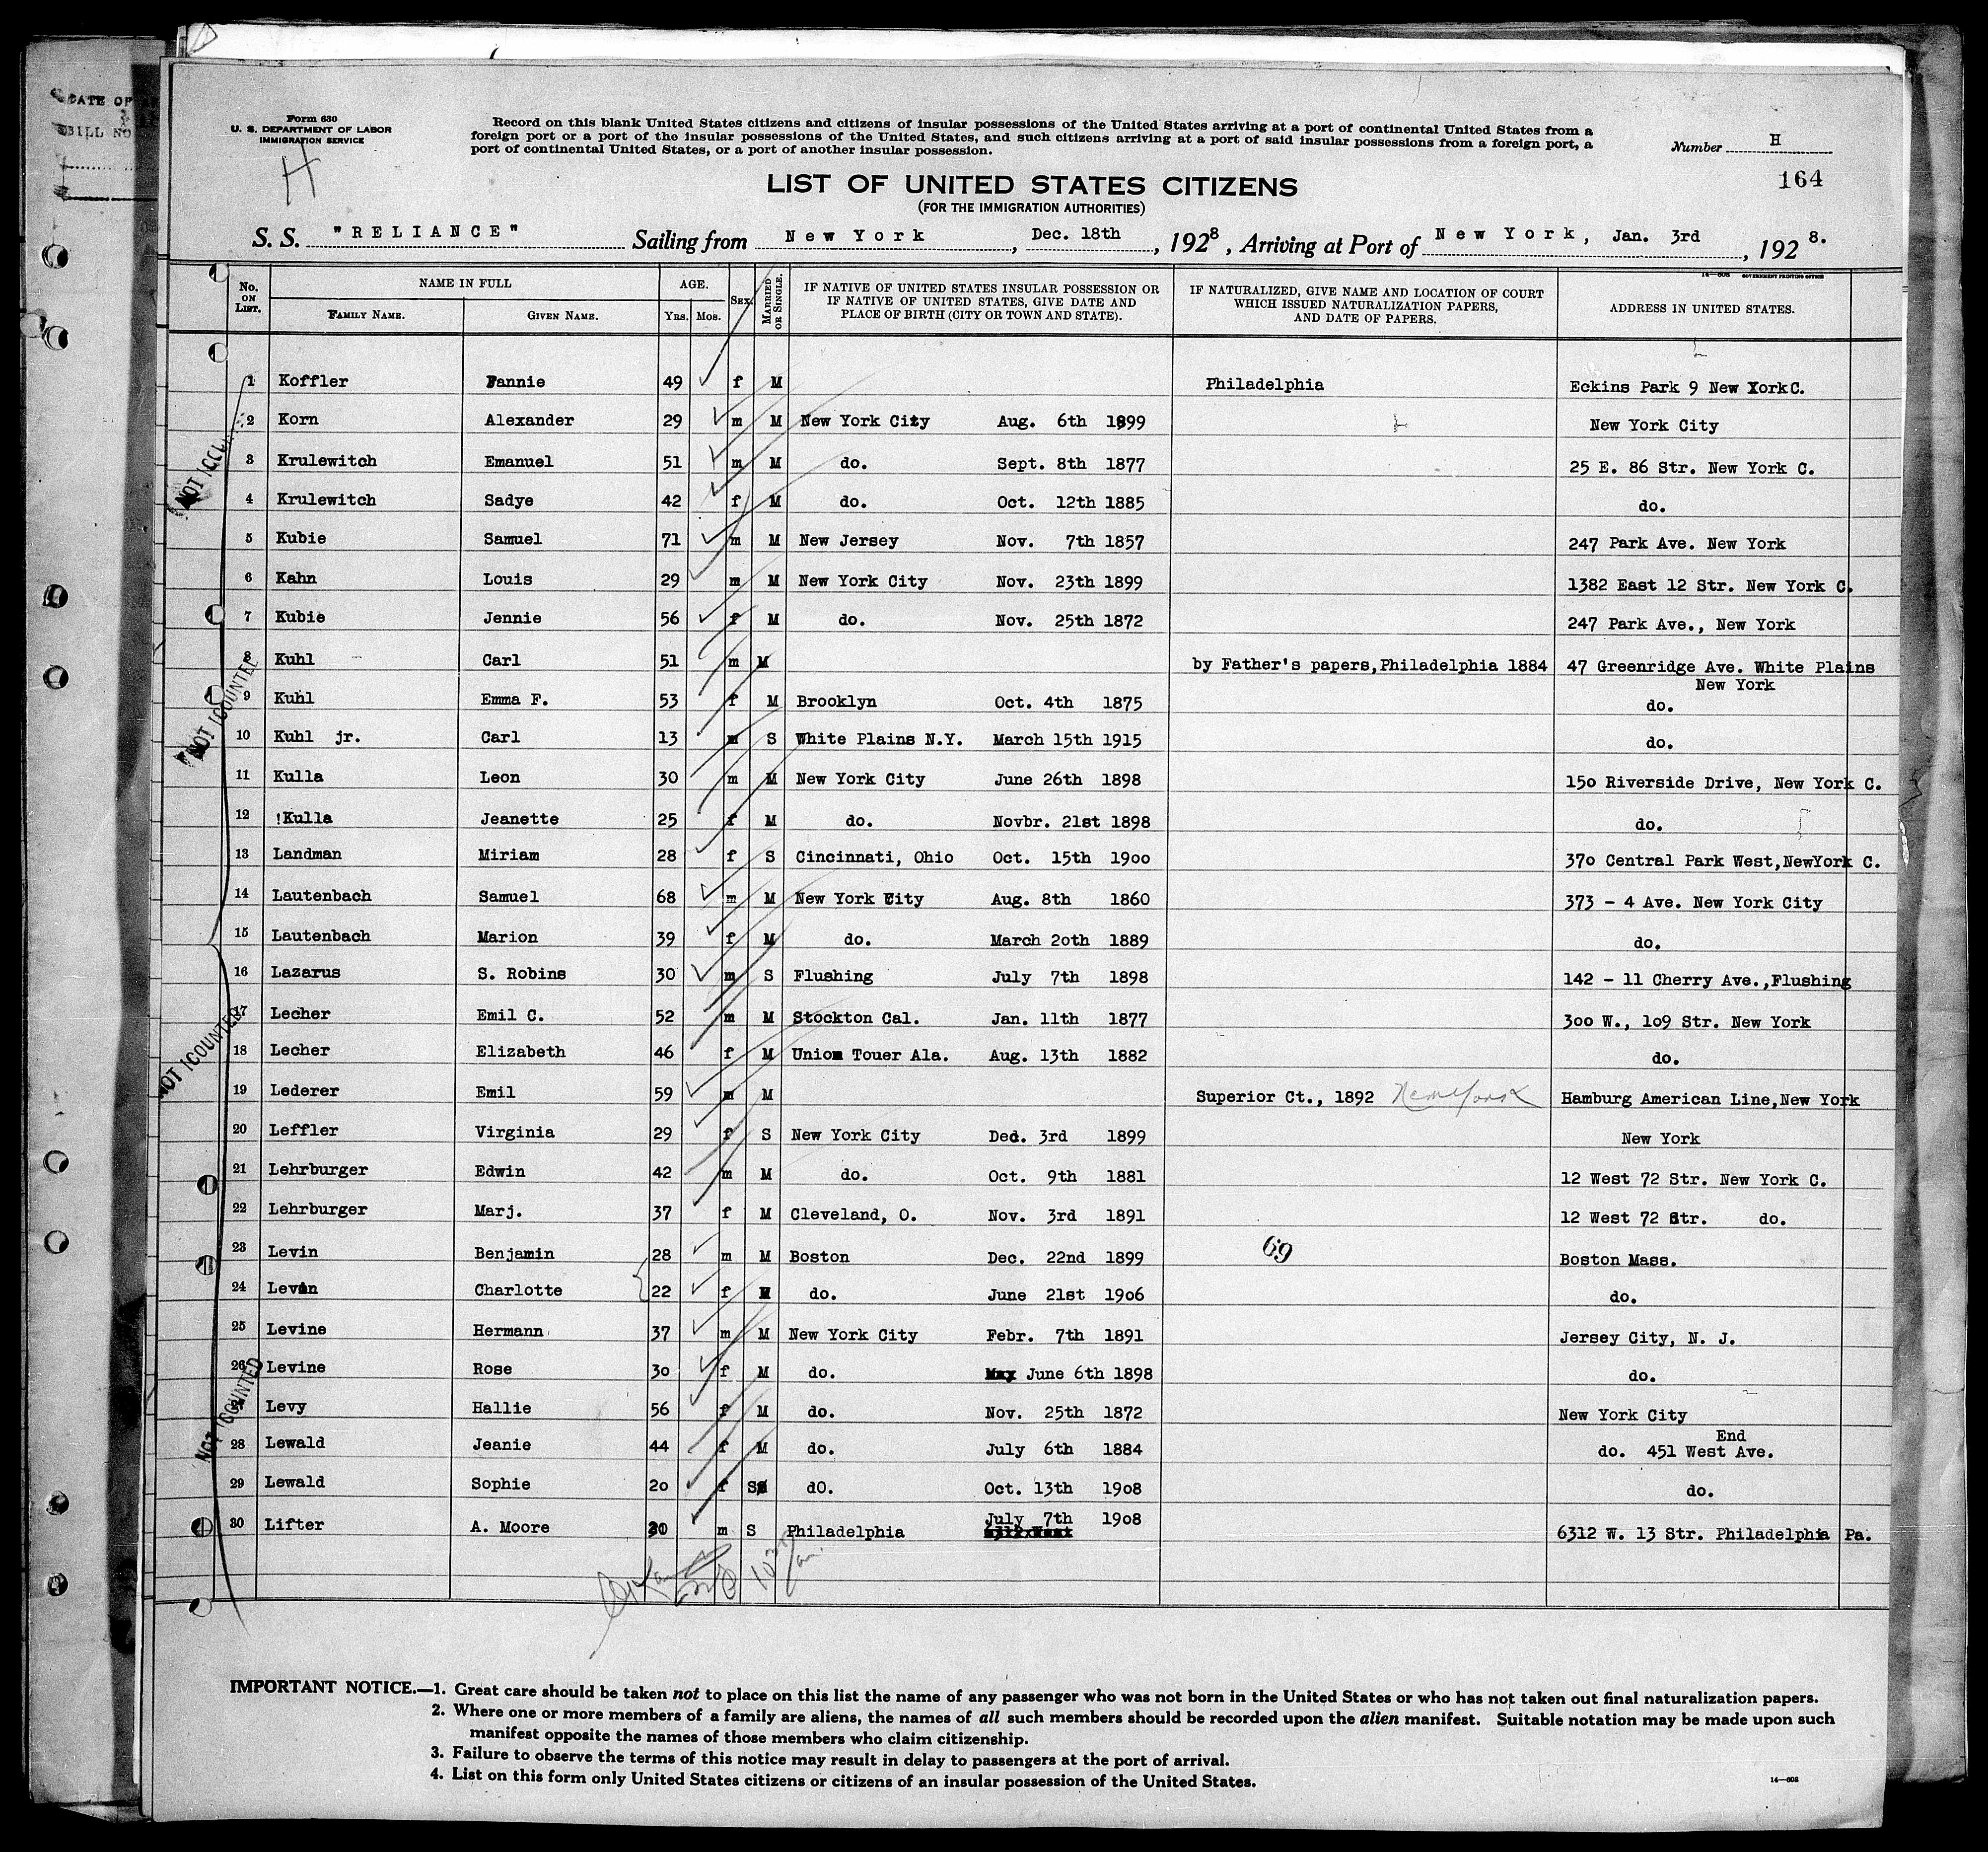 DATE OF
BILL NO
Form 630
U. S. DEPARTMENT OF LABOR
IMMIGRATION SERVICE
H
Record on this blank United States citizens and citizens of insular possessions of the United States arriving at a port of continental United States from a
foreign port or a port of the insular possessions of the United States, and such citizens arriving at a port of said insular possessions from a foreign port, a
port of continental United States, or a port of another insular possession.
Number H
164
LIST OF UNITED STATES CITIZENS
(FOR THE IMMIGRATION AUTHORITIES)
S. S. "RELIANCE" Sailing from New York, Dec. 18th, 1928, Arriving at Port of New York, Jan. 3rd, 1928.
14—608 GOVERNMENT PRINTING OFFICE
No. ON LIST. NAME IN FULL FAMILY NAME. GIVEN NAME. AGE. YRS. MOS. SEX. MARRIED OR SINGLE. IF NATIVE OF UNITED STATES INSULAR POSSESSION OR IF NATIVE OF UNITED STATES, GIVE DATE AND PLACE OF BIRTH (CITY OR TOWN AND STATE). IF NATURALIZED, GIVE NAME AND LOCATION OF COURT WHICH ISSUED NATURALIZATION PAPERS, AND DATE OF PAPERS. ADDRESS IN UNITED STATES.
1 Koffler Fannie 49 f M Philadelphia Eckins Park 9 New York C.
2 Korn Alexander 29 m M New York City Aug. 6th 1899 New York City
3 Krulewitch Emanuel 51 m M do. Sept. 8th 1877 25 E. 86 Str. New York C.
4 Krulewitch Sadye 42 f M do. Oct. 12th 1885 do.
5 Kubie Samuel 71 m M New Jersey Nov. 7th 1857 247 Park Ave. New York
6 Kahn Louis 29 m M New York City Nov. 23th 1899 1382 East 12 Str. New York C.
7 Kubie Jennie 56 f M do. Nov. 25th 1872 247 Park Ave., New York
8 Kuhl Carl 51 m M by Father's papers, Philadelphia 1884 47 Greenridge Ave. White Plains
New York
9 Kuhl Emma F. 53 f M Brooklyn Oct. 4th 1875 do.
10 Kuhl jr. Carl 13 m S White Plains N.Y. March 15th 1915 do.
11 Kulla Leon 30 m M New York City June 26th 1898 150 Riverside Drive, New York C.
12 !Kulla Jeanette 25 f M do. Novbr. 21st 1898 do.
13 Landman Miriam 28 f S Cincinnati, Ohio Oct. 15th 1900 370 Central Park West, NewYork C.
14 Lautenbach Samuel 68 m M New York City Aug. 8th 1860 373 - 4 Ave. New York City
15 Lautenbach Marion 39 f M do. March 20th 1889 do.
16 Lazarus S. Robins 30 m S Flushing July 7th 1898 142 - 11 Cherry Ave., Flushing
17 Lecher Emil C. 52 m M Stockton Cal. Jan. 11th 1877 300 W., 109 Str. New York
18 Lecher Elizabeth 46 f M Union Touer Ala. Aug. 13th 1882 do.
19 Lederer Emil 59 m M Superior Ct., 1892 New York Hamburg American Line, New York
20 Leffler Virginia 29 f S New York City Dec. 3rd 1899 New York
21 Lehrburger Edwin 42 m M do. Oct. 9th 1881 12 West 72 Str. New York C.
22 Lehrburger Marj. 37 f M Cleveland, O. Nov. 3rd 1891 12 West 72 Str. do.
69
23 Levin Benjamin 28 m M Boston Dec. 22nd 1899 Boston Mass.
24 Levin Charlotte 22 f M do. June 21st 1906 do.
25 Levine Hermann 37 m M New York City Febr. 7th 1891 Jersey City, N. J.
26 Levine Rose 30 f M do. May June 6th 1898 do.
27 Levy Hallie 56 f M do. Nov. 25th 1872 New York City
End
28 Lewald Jeanie 44 f M do. July 6th 1884 do. 451 West Ave.
29 Lewald Sophie 20 f S do. Oct. 13th 1908 do.
30 Lifter A. Moore 20 m S Philadelphia July 7th 1908 6312 W. 13 Str. Philadelphia Pa.
NOT COUNTED
NOT COUNTED
NOT COUNTED
IMPORTANT NOTICE.—1. Great care should be taken not to place on this list the name of any passenger who was not born in the United States or who has not taken out final naturalization papers.
2. Where one or more members of a family are aliens, the names of all such members should be recorded upon the alien manifest. Suitable notation may be made upon such
manifest opposite the names of those members who claim citizenship.
3. Failure to observe the terms of this notice may result in delay to passengers at the port of arrival.
4. List on this form only United States citizens or citizens of an insular possession of the United States.
14—608